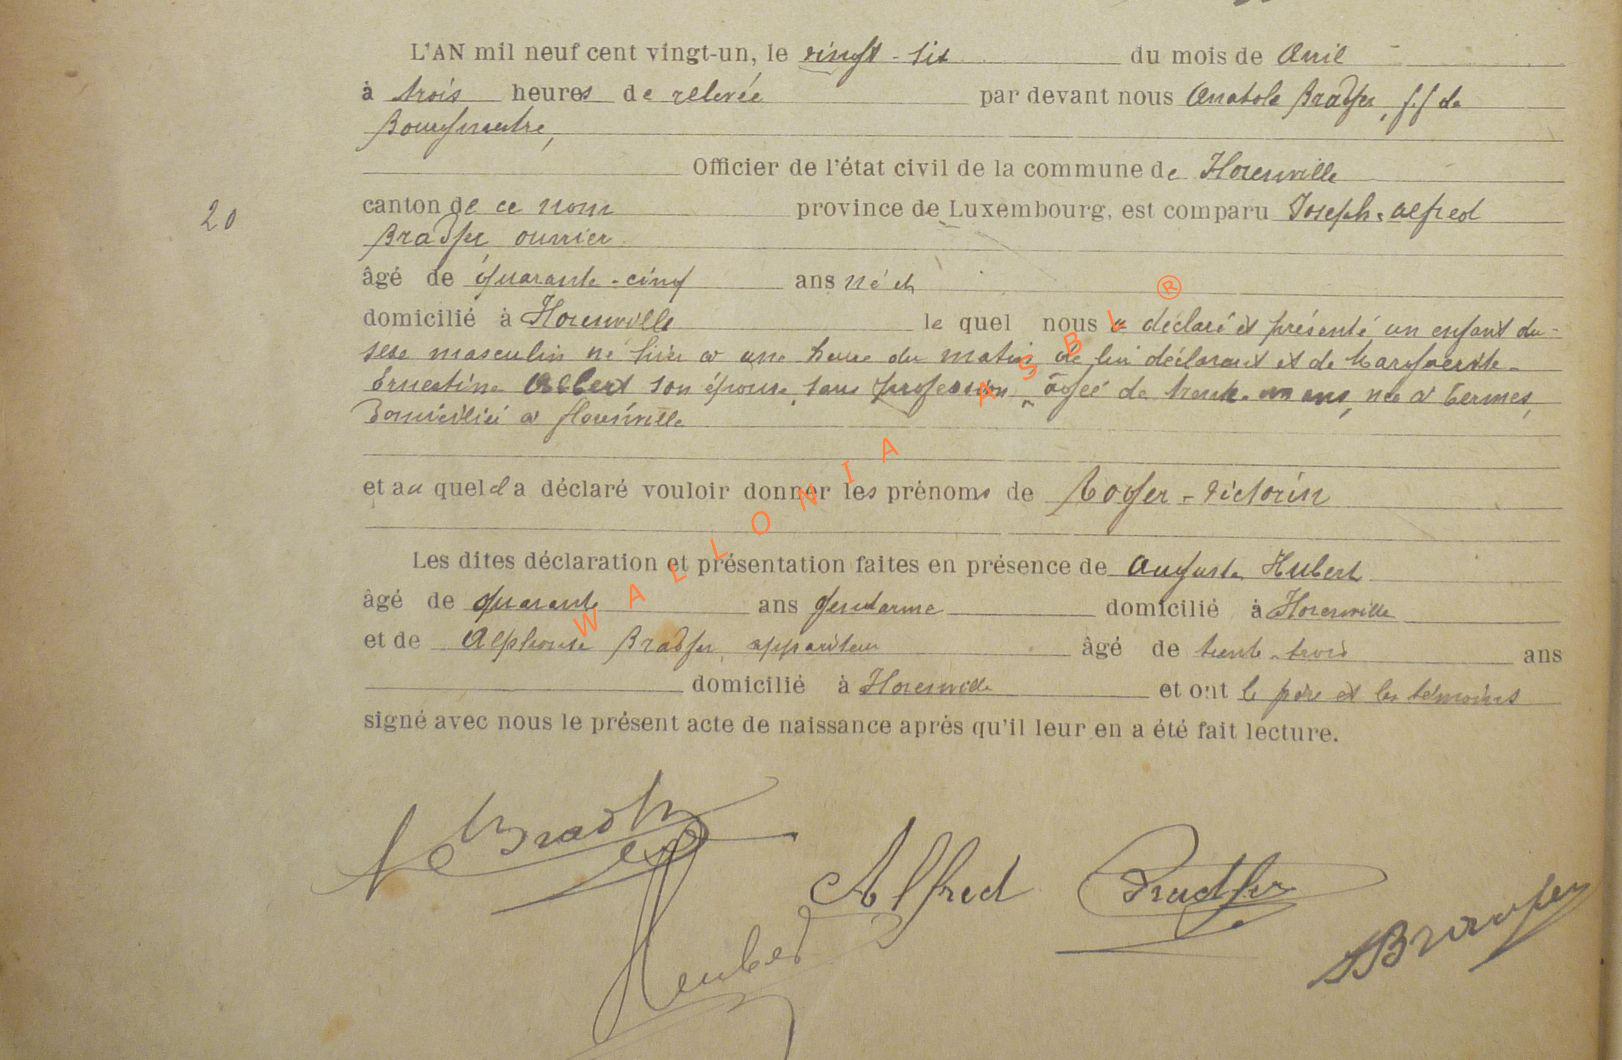 L'AN mil neuf cent vingt-un, le vingt-six du mois de Avril
à trois heures de relevée par devant nous Anatole Bradfer, f.f de
Bourgmestre,
Officier de l'état civil de la commune de Florenville
20
canton de ce nom province de Luxembourg, est comparu Joseph-Alfred
Bradfer ouvrier
âgé de quarante-cinq ans né et
domicilié à Florenville le quel nous a déclaré et présenté un enfant du
sexe masculin né hier à une heure du matin de lui déclarant et de Marguerite
Ernestine Albert son épouse, sans profession, âgée de trente un ans, née à Termes,
domiciliée à Florenville
et au quel il a déclaré vouloir donner les prénoms de Roger-Victorin
Les dites déclaration et présentation faites en présence de Auguste Hubert
âgé de quarante ans gendarme domicilié à Florenville
et de Alphonse Bradfer, appariteur âgé de trente-trois ans
domicilié à Florenville et ont le père et les témoins
signé avec nous le présent acte de naissance après qu'il leur en a été fait lecture.
Bradfer
Alfred Bradfer
Hubert
ABradfer
WALLONIA ASBL ®